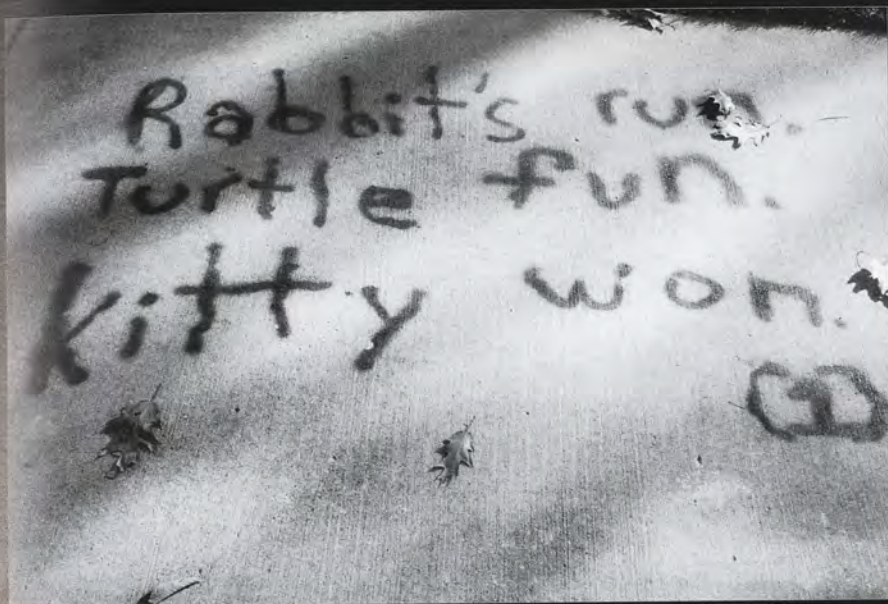 Rabbit's run.
Turtle fun.
Kitty won.